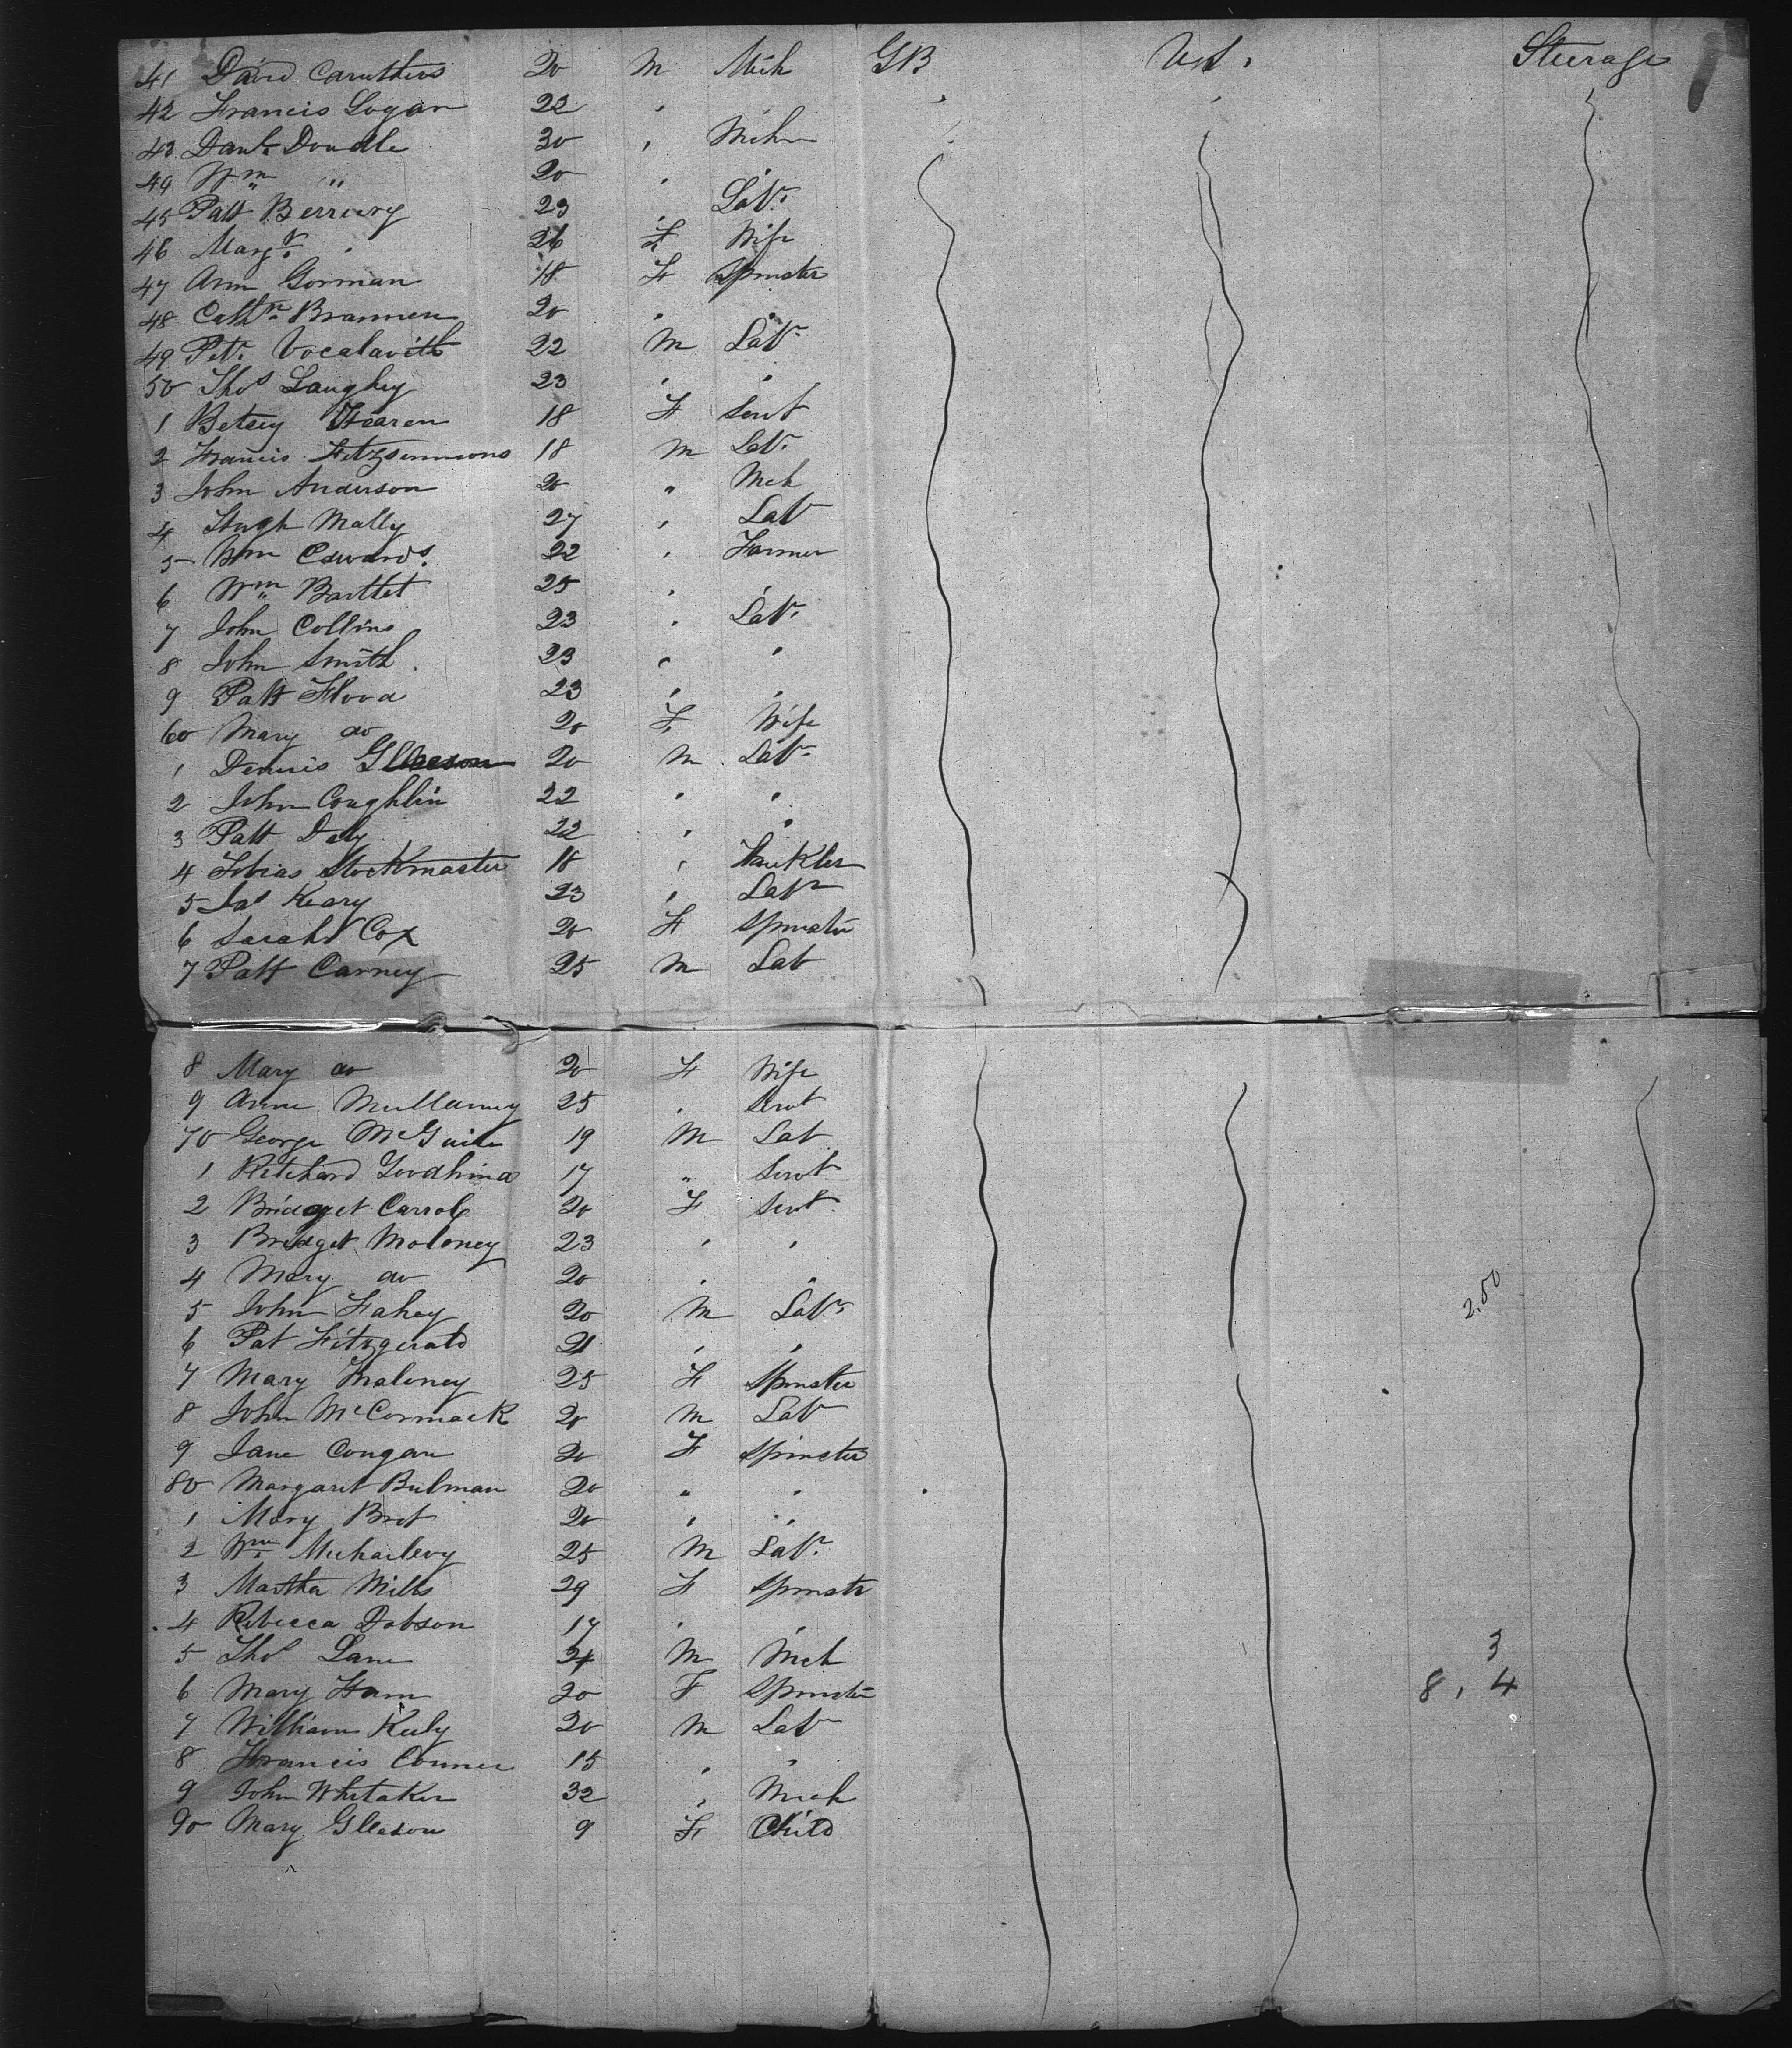 41 David Caruthers 20 M Mech GB US. Steerage
42 Francis Logan 22 "
43 Danl. Doudle 30 " Mech
44 Wm " 20 " "
45 Patt Berrury 23 " Labr.
46 Margt. " 26 F Wife
47 Ann Gorman 18 F Spinster
48 Cathn. Brannen 20 " "
49 Petr. Vocalavith 22 M Labr.
50 Thos Laughey 23 " "
1 Betsey Hearen 18 F Servt
2 Francis Fitzsimmons 18 M Labr.
3 John Anderson 20 " Mch
4 Hugh Mally 27 " Labr
5 Wm Edwards. 22 " Farmer
6 Wm Bartlet 25 " "
7 John Collins 23 " Labr.
8 John Smith. 23 " "
9 Patt Flood 23 " "
60 Mary do 20 F Wife
1 Dennis Gleeson 20 M Labr.
2 John Coughlin 22 " "
3 Patt Daly 22 " "
4 Tobias Stockmaster 18 "
5 Jas Keary 23 " Labr
6 Sarah Cox 20 F Spinster
7 Patt Carney 25 M Lab
8 Mary do 20 F Wife
9 Anne Mullaney 25 " Servt
70 George McGuire 19 M Lab
1 Ritchard Goodhind 17 " Servt
2 Bridget Carrol 20 F Servt
3 Bridget Moloney 23 " "
4 Mary do 20 " "
5 John Fahey 20 M Labr. 2.50
6 Pat Fitzgerald 21 " "
7 Mary Maloney 25 F Spinster
8 John McCormack 20 M Labr
9 Jane Cougan 20 F Spinster
80 Margaret Bulman 20 " "
1 Mary Bret 20 " "
2 Wm. Michaelevy 25 M Labr.
3 Martha Mills 29 F Spinster
4 Rebecca Dobson 17 " "
5 Thos Lane 24 M Mch 3
6 Mary Ham 20 F Spinster 8, 4
7 William Kely 20 M Labr
8 Francis Conner 15 " "
9 John Whitaker 32 " Mech
90 Mary Gleeson 9 F Child